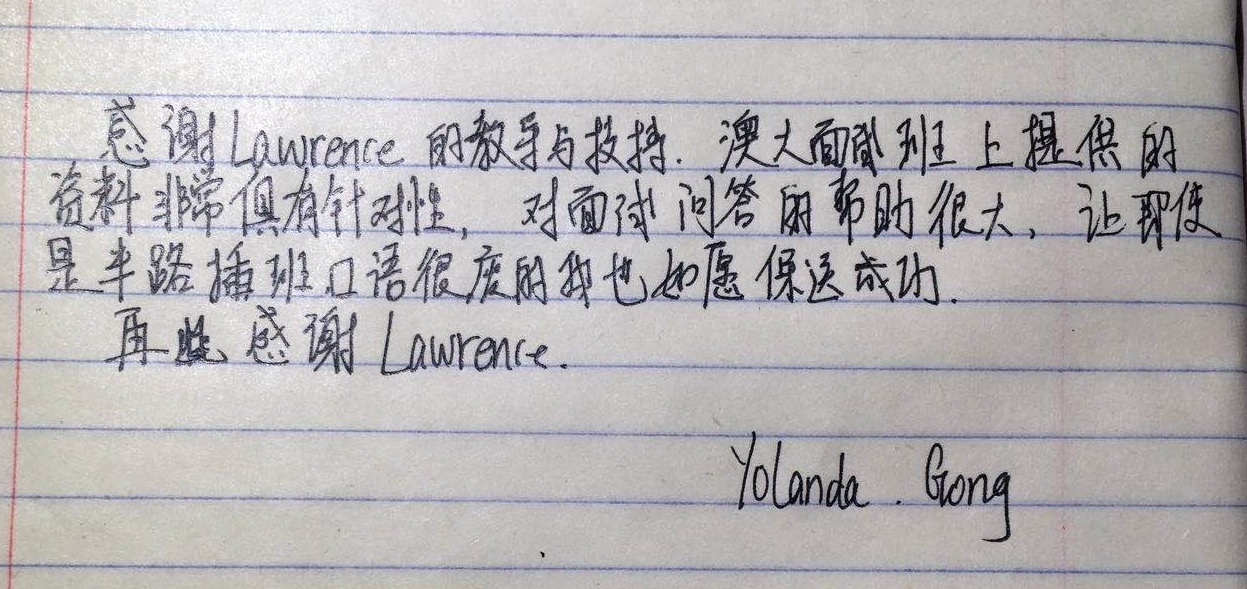 感谢Lawrence的教导与扶持. 澳大面试班上提供的
资料非常俱有针对性, 对面试问答的帮助很大, 让即使
是半路插班口语很废的我也如愿保送成功.
再此感谢Lawrence.
Yolanda. Gong